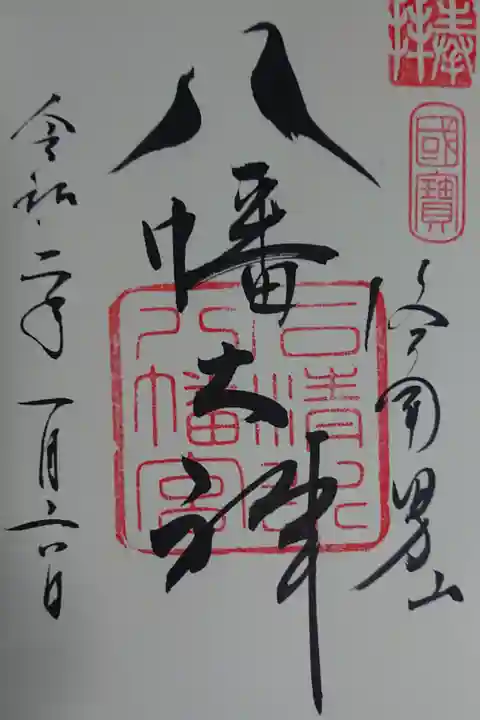 奉拝
國寶
洛南男山
八幡大神
石清水八幡宮
令和二年一月六日